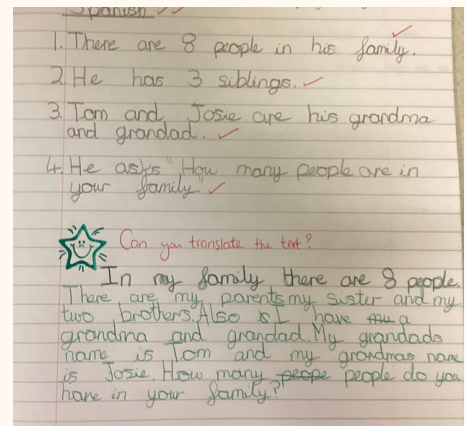 Spanish
1. There are 8 people in his family.
2. He has 3 siblings.
3. Tom and Josie are his grandma
and grandad.
4. He asks "How many people are in
your family"
Can you translate the text?
In my family there are 8 people.
There are my parents my suster and my
two brothers. Also I have a
grandma and grandad. My grandads
name is Tom and my grandmas name
is Josie. How many peope people do you
have in your family?